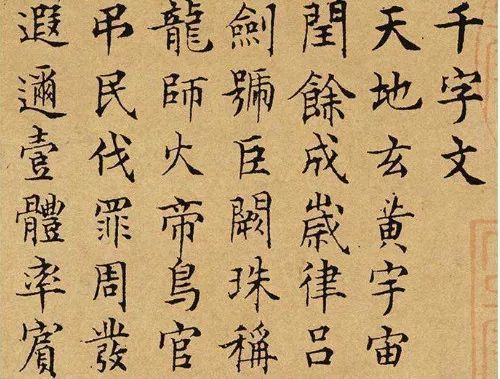 千字文
天地玄黃宇宙
閏餘成歲律呂
劍號巨闕珠稱
龍師火帝鳥官
吊民伐罪周發
遐邇壹體率賓